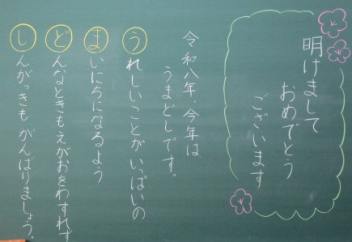 明けまして
おめでとう
ございます
令和八年、今年は
うまどしです。
うれしいことがいっぱいの
まいにちになるよう
どんなときもえがおをわすれず
しんがっきもがんばりましょう。